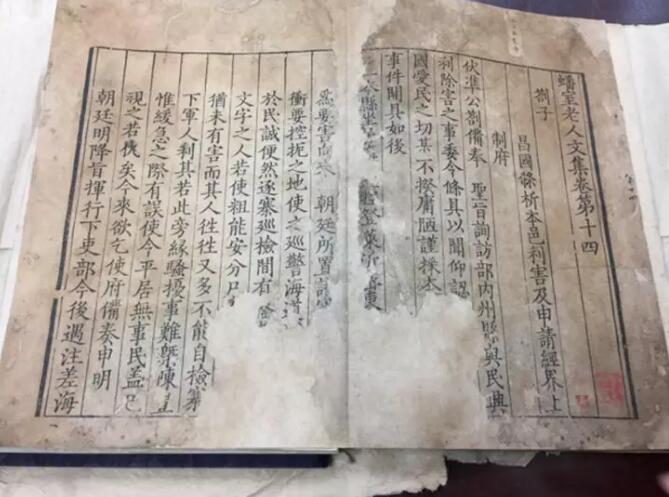 蟠室老人文集卷第十四
劄子
昌國縣析本邑利害及申請經界上
制府
伏準公劄備奉 聖旨詢訪部內州縣與民興
利除害之事委令條具以聞仰認
國愛民之切某不揆庸陋謹採本
事件開具如後
一本縣
爲要害向來 朝廷所置
衝要控扼之地使之巡警海道
於民誠便然逐寨巡檢間有
文字之人若使粗能安分
猶未有害而其人往往又多不能自檢束
下軍人利其若此旁緣騷擾事難槩陳豈
惟緩急之際有誤使令平居無事民蓋已
視之若仇矣今來欲乞使府備奏申明
朝廷明降旨揮行下吏部今後遇注差海